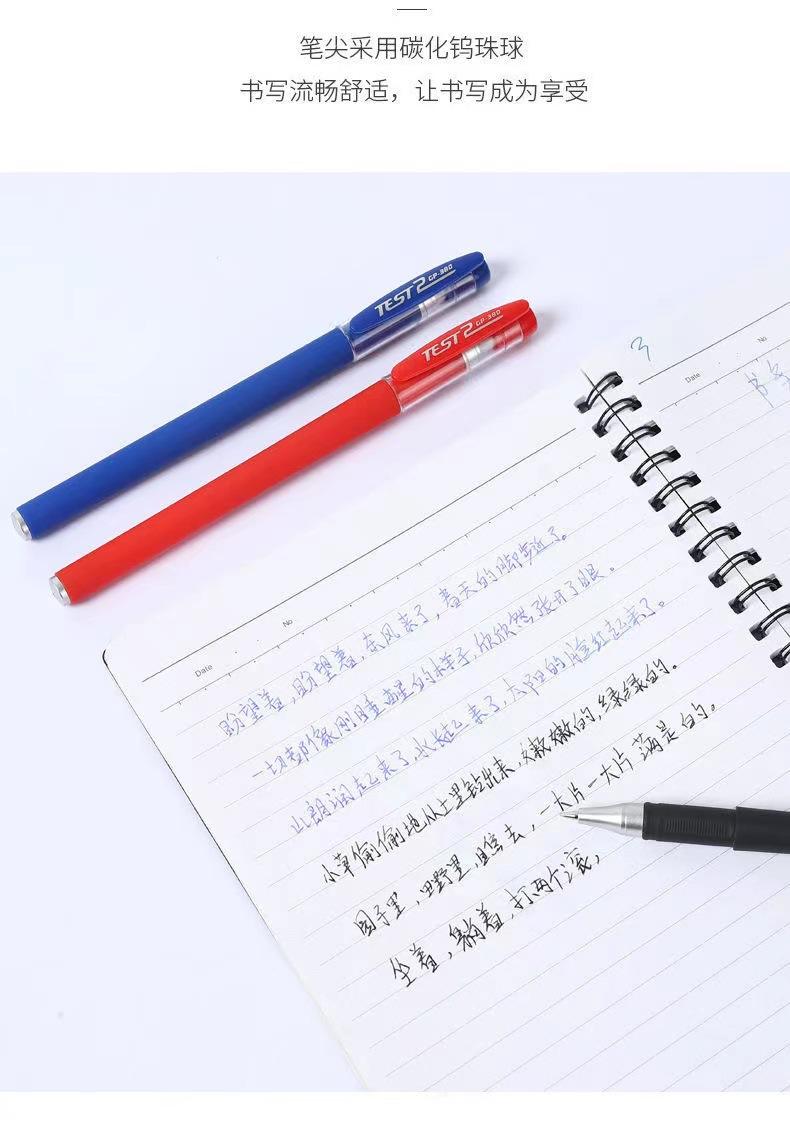 笔尖采用碳化钨珠球
书写流畅舒适，让书写成为享受
TEST2 GP-380
TEST2 GP-380
3
Date
No
书写
Date
No
盼望着，盼望着，东风来了，春天的脚步近了。
一切都像刚睡醒的样子，欣欣然张开了眼。
山朗润起来了，水长起来了，太阳的脸红起来了。
小草偷偷地从土里钻出来，嫩嫩的，绿绿的。
园子里，田野里，瞧去，一大片一大片满是的。
坐着，躺着，打两个滚，